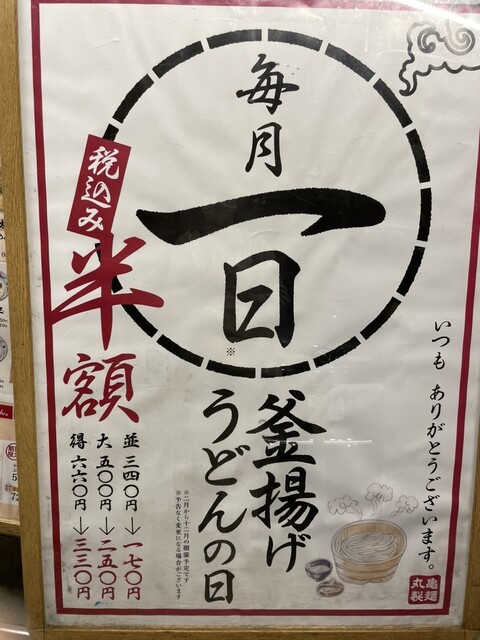 毎月
一日
※
釜揚げ
うどんの日
税込み
半額
並 三四〇円→一七〇円
大 五〇〇円→二五〇円
得 六六〇円→三三〇円
※二月から十二月の開催予定です
※予告なく変更になる場合がございます
いつも ありがとうございます。
丸亀製麺